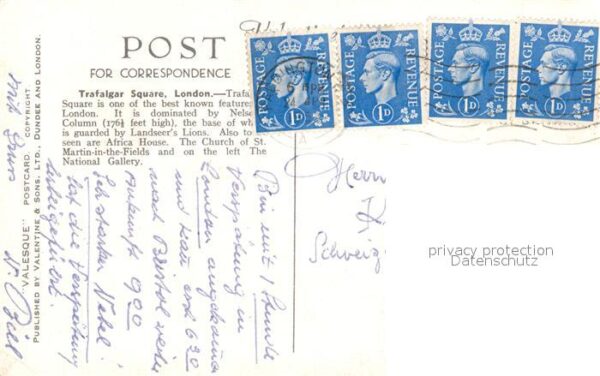 POST
FOR CORRESPONDENCE
Trafalgar Square, London.—Trafal
Square is one of the best known feature
London. It is dominated by Nels
Column (176½ feet high), the base of wh
is guarded by Landseer's Lions. Also to
seen are Africa House. The Church of St.
Martin-in-the-Fields and on the left The
National Gallery.
"VALESQUE" POSTCARD. COPYRIGHT.
PUBLISHED BY VALENTINE & SONS, LTD., DUNDEE AND LONDON.
POSTAGE REVENUE
1D
POSTAGE REVENUE
1D
POSTAGE REVENUE
1D
POSTAGE REVENUE
1D
Bin mit 1 Stunde
Verspätung in
London angekommen
und kann erst 6 30
nach Bristol weiter
Ankunft 9 00
Sehr starker Nebel
hat die Verspätung
herbeigeführt.
Herrn
Schweiz
privacy protection
Datenschutz